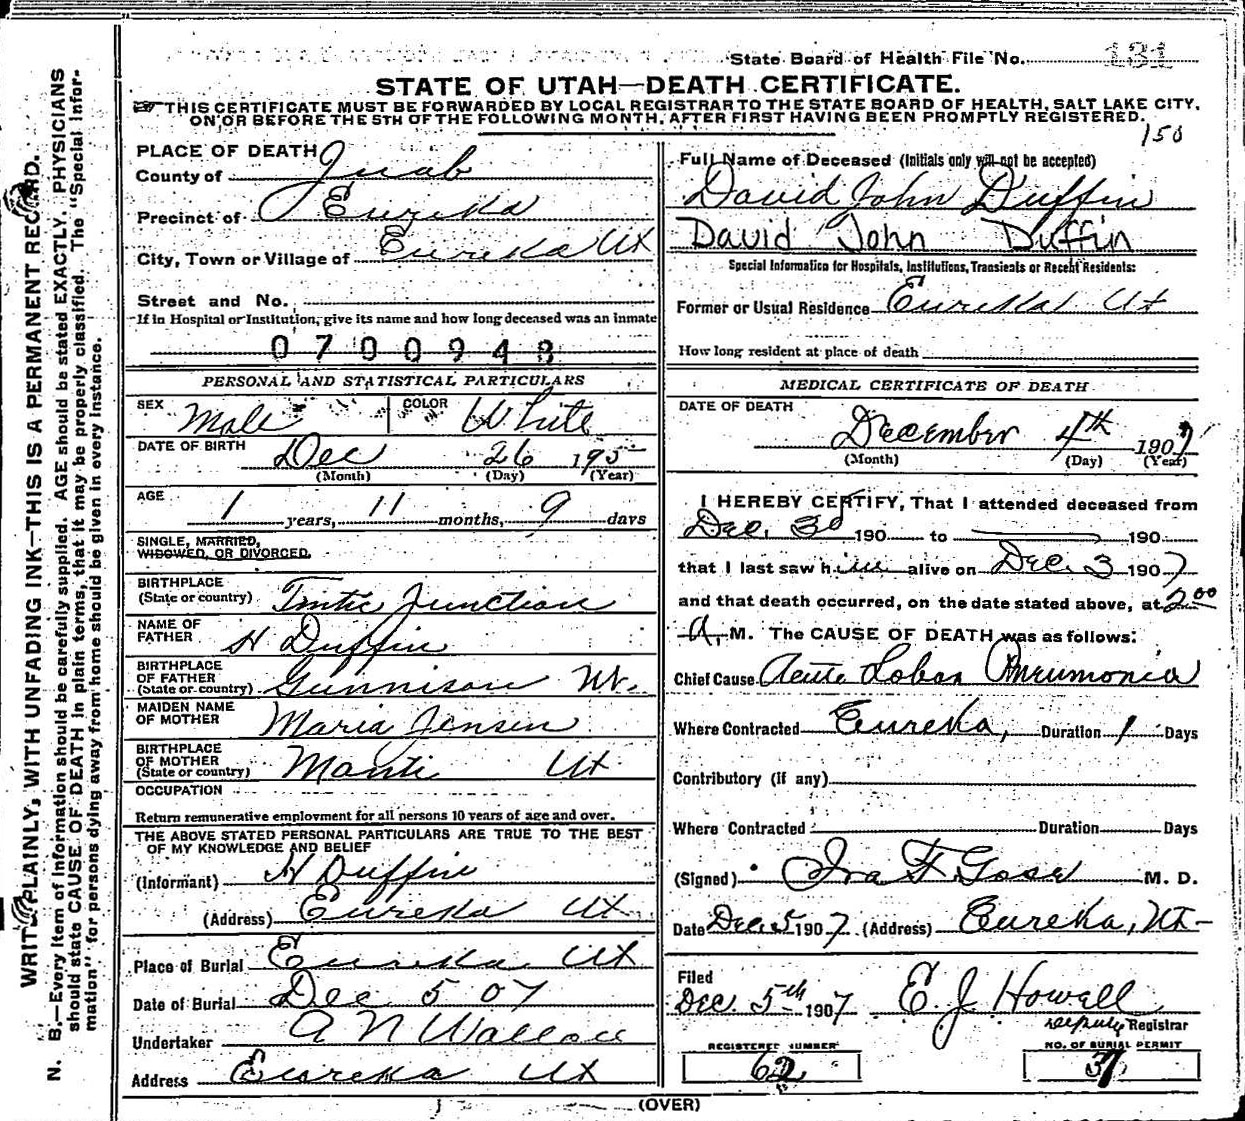 State Board of Health File No. 131
STATE OF UTAH—DEATH CERTIFICATE.
THIS CERTIFICATE MUST BE FORWARDED BY LOCAL REGISTRAR TO THE STATE BOARD OF HEALTH, SALT LAKE CITY,
ON OR BEFORE THE 5TH OF THE FOLLOWING MONTH, AFTER FIRST HAVING BEEN PROMPTLY REGISTERED.
150
WRITE PLAINLY, WITH UNFADING INK—THIS IS A PERMANENT RECORD.
N. B.—Every item of information should be carefully supplied. AGE should be stated EXACTLY. PHYSICIANS
should state CAUSE OF DEATH in plain terms, that it may be properly classified. The "Special Infor-
mation" for persons dying away from home should be given in every instance.
PLACE OF DEATH
County of Juab
Precinct of Eureka
City, Town or Village of Eureka Ut
Street and No.
If in Hospital or Institution, give its name and how long deceased was an inmate
0700948
PERSONAL AND STATISTICAL PARTICULARS
SEX Male COLOR White
DATE OF BIRTH Dec 26 195
(Month) (Day) (Year)
AGE 1 years, 11 months, 9 days
SINGLE, MARRIED,
WIDOWED, OR DIVORCED.
BIRTHPLACE
(State or country) Tintic Junction
NAME OF
FATHER H Duffin
BIRTHPLACE
OF FATHER
(State or country) Gunnison Ut.
MAIDEN NAME
OF MOTHER Maria Jensen
BIRTHPLACE
OF MOTHER
(State or country) Manti Ut
OCCUPATION
Return remunerative employment for all persons 10 years of age and over.
THE ABOVE STATED PERSONAL PARTICULARS ARE TRUE TO THE BEST
OF MY KNOWLEDGE AND BELIEF
(Informant) H Duffin
(Address) Eureka Ut
Place of Burial Eureka Ut
Date of Burial Dec 5 07
Undertaker A N Wallace
Address Eureka Ut
Full Name of Deceased (Initials only will not be accepted)
David John Duffin
David John Duffin
Special Information for Hospitals, Institutions, Transients or Recent Residents:
Former or Usual Residence Eureka Ut
How long resident at place of death
MEDICAL CERTIFICATE OF DEATH
DATE OF DEATH
December 4th 1907
(Month) (Day) (Year)
I HEREBY CERTIFY, That I attended deceased from
Dec. 3d 190 to 190
that I last saw him alive on Dec. 3 1907
and that death occurred, on the date stated above, at 2:00
A. M. The CAUSE OF DEATH was as follows:
Chief Cause Acute Lobar Pneumonia
Where Contracted Eureka, Duration 1 Days
Contributory (if any)
Where Contracted Duration Days
(Signed) Ira F Goss M. D.
Date Dec. 5 1907. (Address) Eureka, Ut
Filed
Dec. 5th 1907 E. J. Howell
Deputy Registrar
REGISTERED NUMBER
62
NO. OF BURIAL PERMIT
31
(OVER)